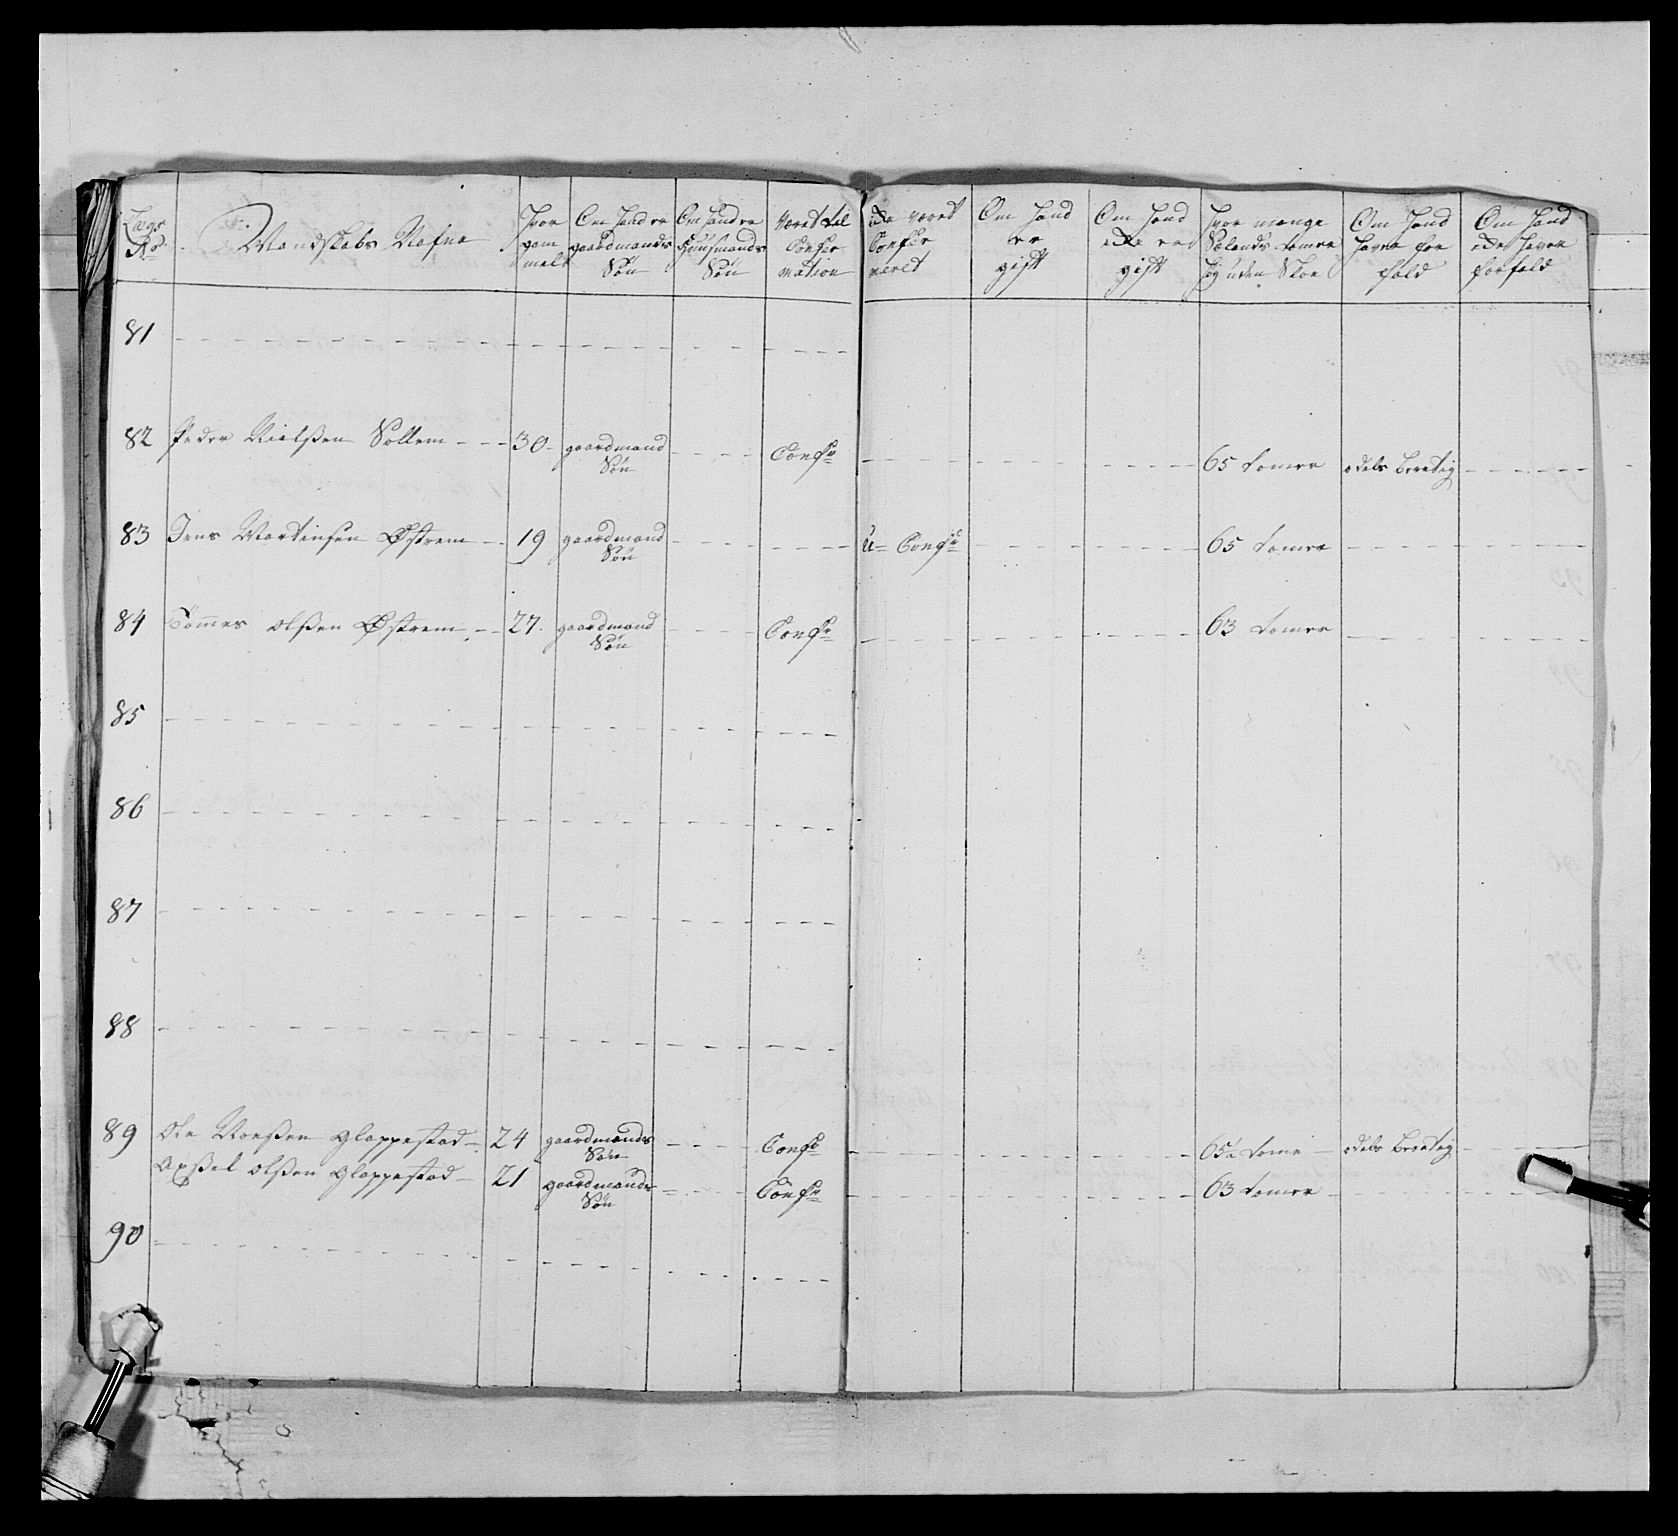 Lægs No. Mandskabs Nafne Hvor gam mel Om Hand er gaardmands Søn Om Hand er Huusmands Søn Været til Confir mation Ike været Confir meret Om Hand er gift Om Hand ike er gift Hvor mange Sælands tomer høy uden Skoe Om Hand haver for fald Om Hand ike haver forfald
81
82 Peder Nielßen Sollem 30 gaardmand Søn Conf: 65 tomer odels beretig
83 Jens Mortensen Østrem 19 gaardmand Søn U= Conf: 65 tomer
84 Tommes Olßen Østrem 27 gaardmand Søn Conf: 63 tomer
85
86
87
88
89 Ole Moenßen Gloppestad 24 gaardmands Søn Conf: 65½ tome odels beretig
Axßel Olßen Gloppestad 21 gaardmands Søn Conf: 63 tomer
90